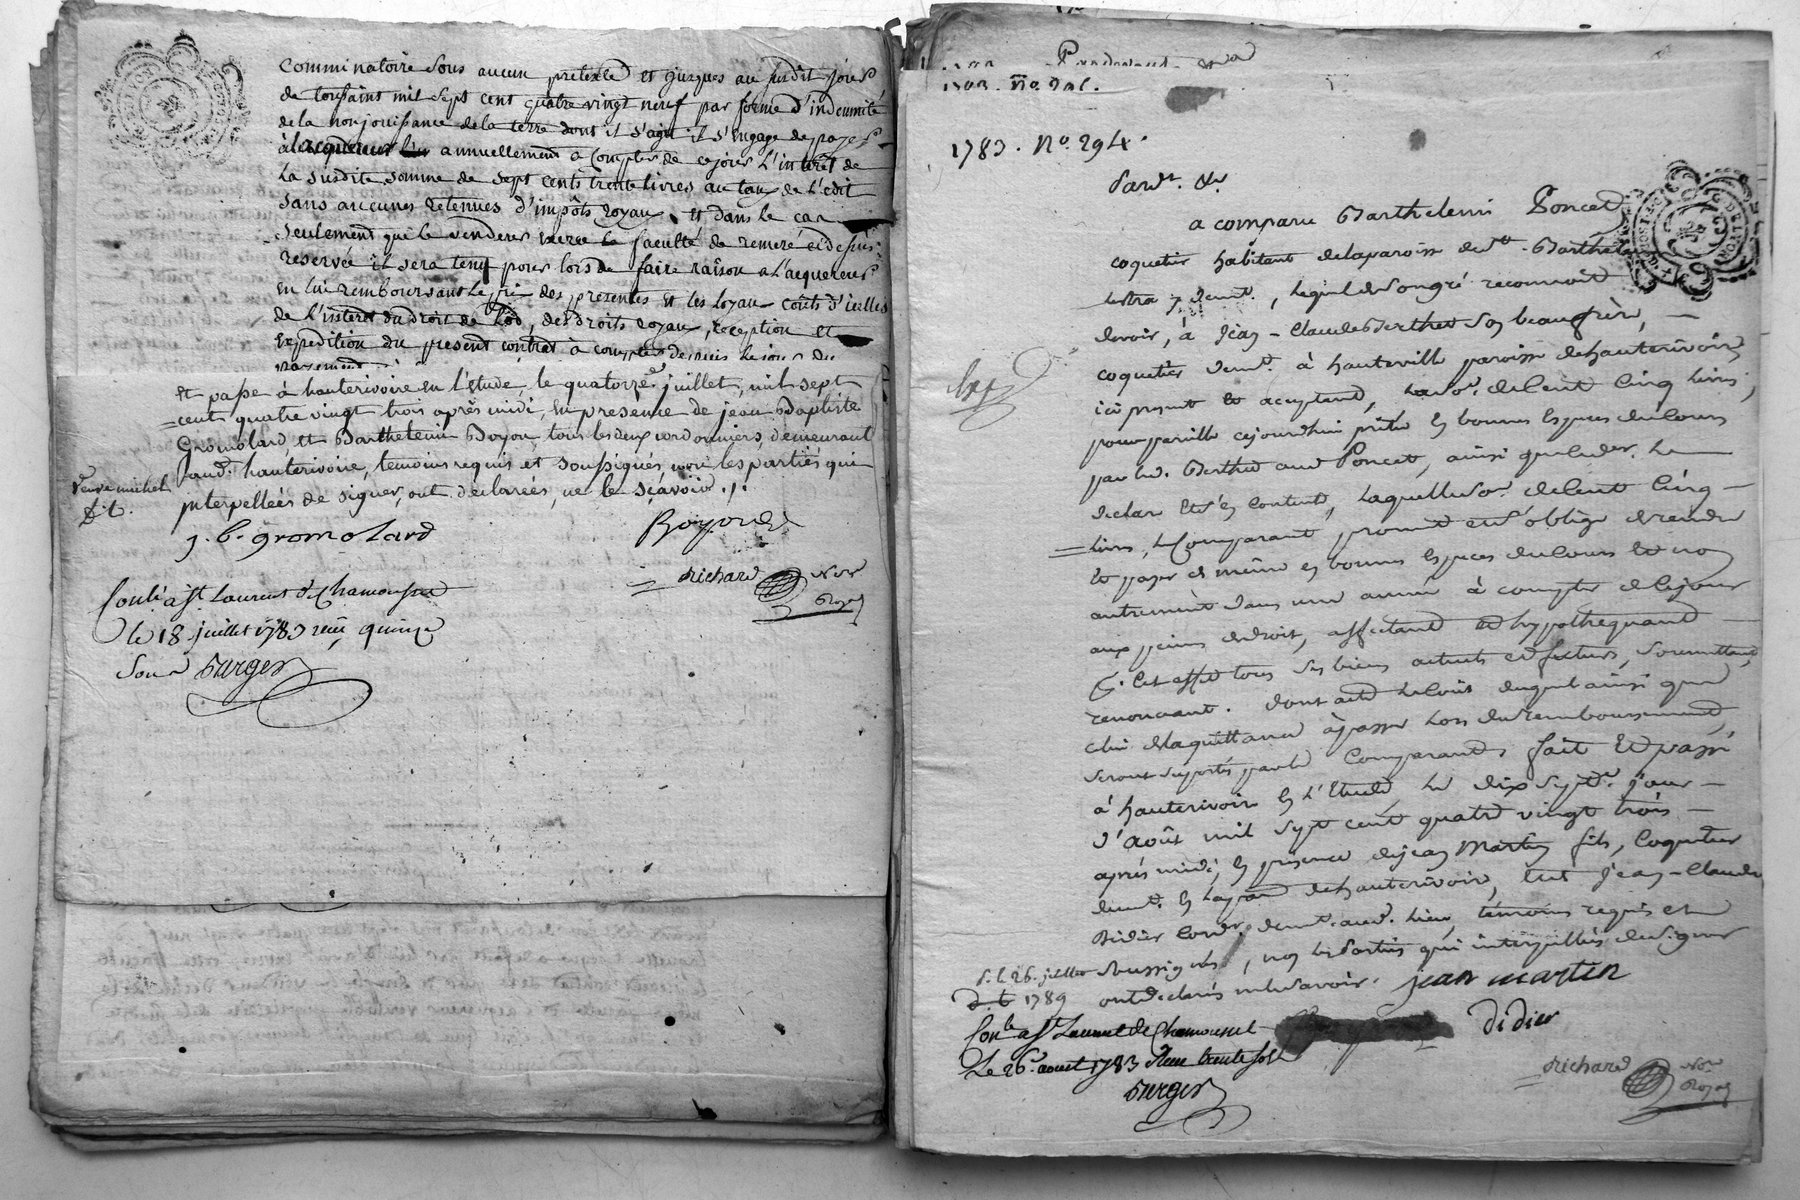 comminatoire sous aucun pretexte et jusques au susdit jour
de toussaints mil sept cent quatre vingt neuf par forme d'indemnité
de la non jouissance de la terre dont il s'agit il s'engage de payer
à l'acquereur annuellement à compter de ce jour l'interêt de
la susdite somme de sept cents trente livres au taux de l'edit
sans aucunes retenues d'impôts royaux et dans le cas
seulement que le vendeur exerce la faculté de remeré ci dessus
reservée il sera tenu pour lors de faire raison a l'acquereur
en lui remboursant le prix des presentes et les loyaux coûts d'icelles
de l'interêt du droit de lod, des droits royaux, reception et
expedition du present contrat à compter depuis le jour du
payement
et passé à hauterivoire en l'étude, le quatorze juillet, mil sept
cent quatre vingt trois après midi, en presence de jean Baptiste
Gromolard, et Barthelemi Boyou, tous les deux cordonniers, demeurant
aud. hauterivoire, temoins requis et soussignés, non les parties qui
interpellées de signer, ont declarées, ne le sçavoir ./.
veuve michel
j. b. gromolard
richard Nore
Royal
Conlé a St Laurent de Chamousset
le 18 juillet 1783 reçu quinze
Sous Barges
1783. No. 294.
Pardt. &c
a comparu Barthelemi Poncet
coquetier habitant de la paroisse de St. Barthel
lestra y demt., lequel de son gré reconnoit
devoir, à Jean-Claude Berthet son beaufrère,
coquetier demt. à hauteville paroisse de hauterivoire
ici present et acceptant, la so. de cent cinq livres,
pour pareille cejourdhui prêtée en bonnes especes du cours
par led. Berthet aud. Poncet, ainsi que le
declare et s'en contente, laquelle so. de cent cinq
livres, le comparant, promet et s'oblige de rendre
et payer de même en bonnes especes du cours et non
autrement dans une année à compter de ce jour
aux peines de droit, affectant et hypothequant
à cet effet tous ses biens actuels et futurs, soumettant,
renonçant. dont acte le coût duquel ainsi que
celui de la quittance à passer lors du remboursement,
seront suportés par le comparant, fait et passé
à hauterivoire en l'étude le dix septe. jour
d'août mil sept cent quatre vingt trois
après midi, en presence de jean Martin fils, coquetier
demt. en la par. de hauterivoire, et Jean-Claude
Didier cordr. demt. aud. lieu, témoins requis et
soussignés, non les parties qui interpellées de signer
ont declarés ne le savoir.
jean martin
26. juillet
1789
didier
Conlé a St Laurent de Chamousset
Le 26. aoust 1783 Reçu trente sols
Barges
richard Nore
Royal